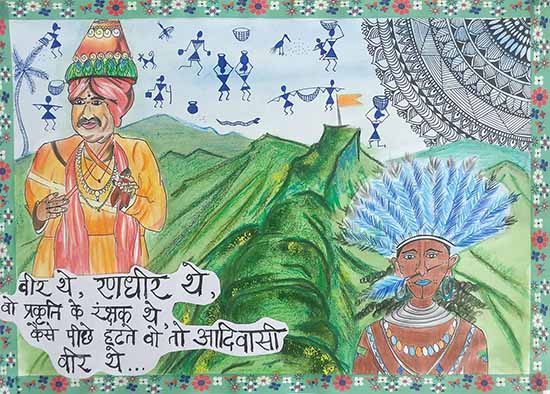 वीर थे, रणधीर थे,
वो प्रकृति के रक्षक थे,
कैसे पीछे हटते वो, तो आदिवासी
वीर थे...